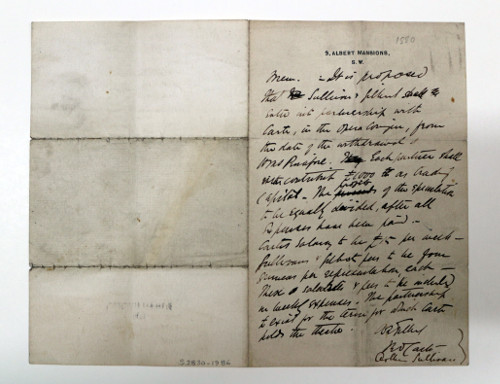 1580
9, ALBERT MANSIONS,
S. W.
Mem. - It is proposed
that Sullivan & Gilbert shall
enter into partnership with
Carte, in the Opera Comique, from
the date of the withdrawal of
HMS Pinafore. Each partner shall
contribute £1000 as trading
Capital - The profits of the speculation
to be equally divided, after all
Expenses have been paid -
Cartes salary to be £15 per week -
Sullivan's & Gilbert's fees to be four
Guineas per representation, each -
These salaries & fees to be included
in weekly expenses. The partnership
to exist for the term for which Carte
holds the theatre.
WS Gilbert
R D Carte
Arthur Sullivan